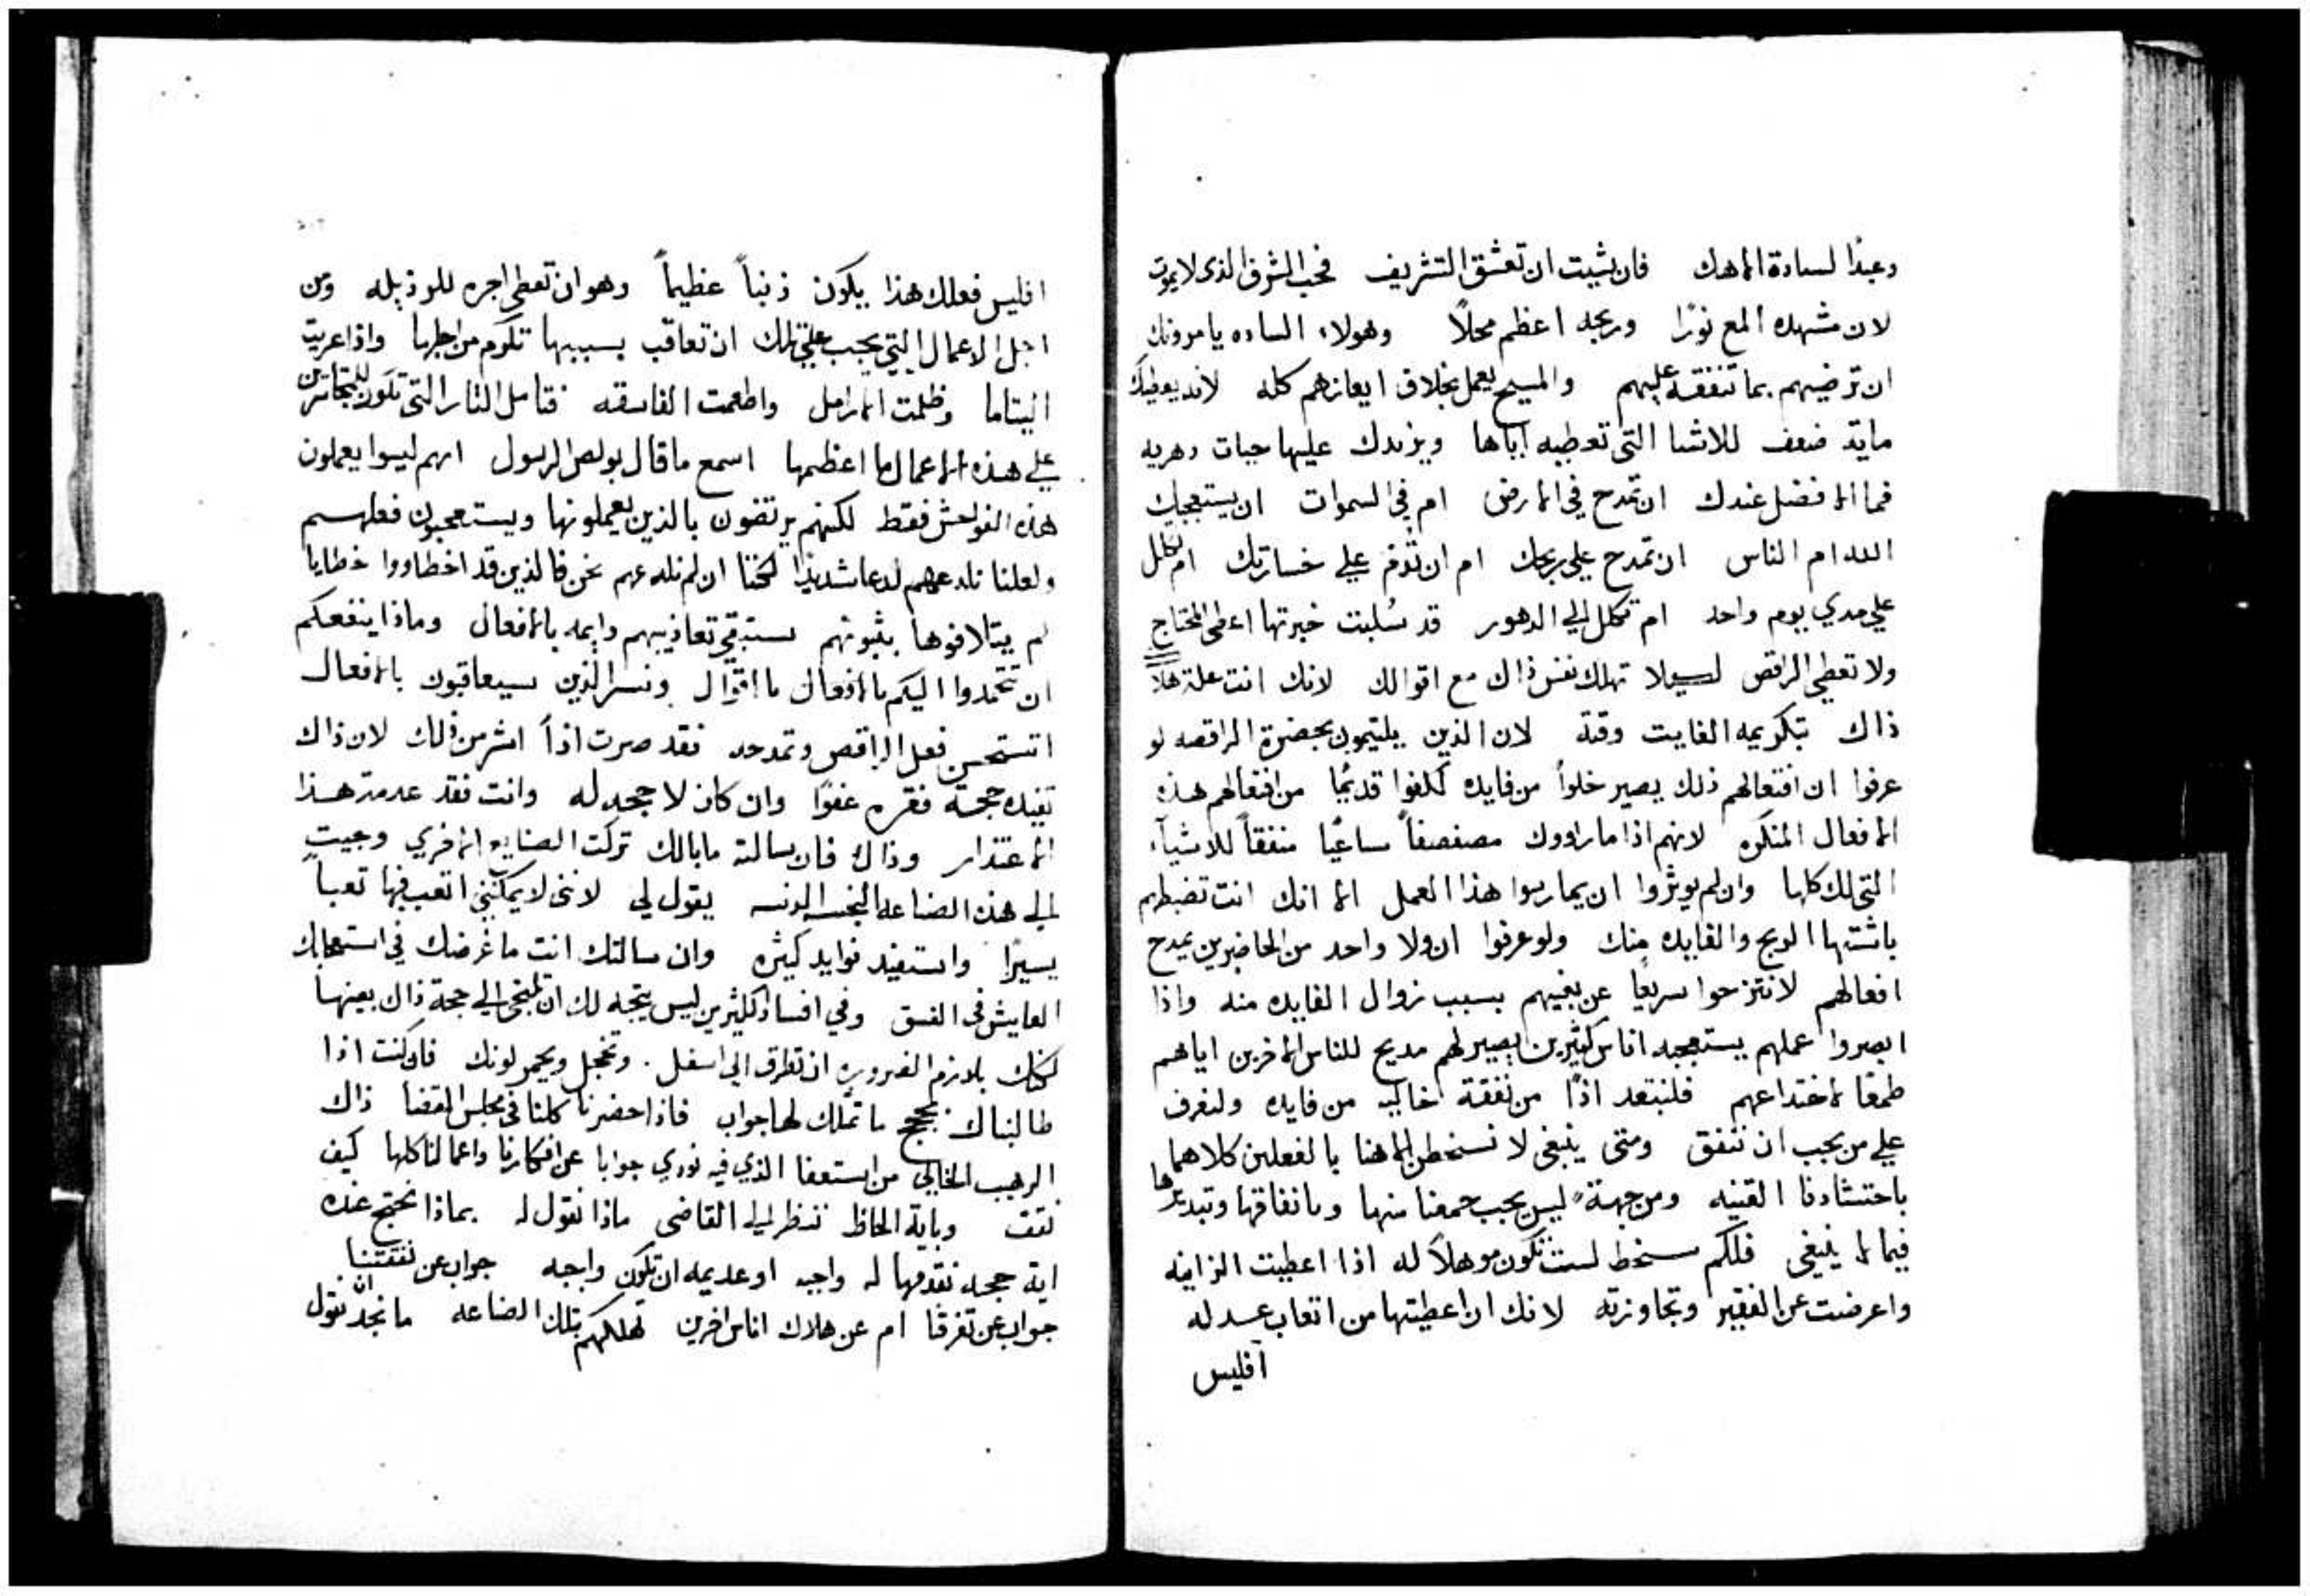 وعبدًا لسادة الاهك فان شيت ان تعشق التشريف فحب الشرف الذى لايموت
لان مشهده المع نورًا وربحه اعظم محلًا وهولاء الساده يامرونك
ان ترضيهم بما تنفقه عليهم والمسيح يعمل بخلاف ايعازهم كله لانه يعطيك
ماية ضعف للاشيا التى تعطيه اياها ويزيدك عليها حيات دهريه
فما الافضل عندك ان تمدح في الارض ام في السموات ان يستعجبك
الله ام الناس ان تمدح علي ربحك ام ان تُذم علي خسارتك ام تكلل
علي مدي يوم واحد ام تكلل الي الدهور قد سُلبت خبرتها اعطى المحتاج
ولا تعطي الراقص لييلا تهلك نفس ذاك مع اقوالك لانك انت علة هلاك
ذاك بتكريمه الفايت وقتة لان الذين يلتيمون بحضرة الراقصه لو
عرفوا ان افتعالهم ذلك يصير خلواً من فايده لكفوا قديمًا من افتعالهم هذه
الافعال المنكره لانهم اذا ما راووك مصفصفاً ساعيًا منفقاً للاشيآء
التى لك كلها وان لم يوثروا ان يمارسوا هذا العمل الا انك انت تضبطهم
باشتها الربح والفايده منك ولو عرفوا ان ولا واحد من الحاضرين يمدح
افعالهم لانتزحوا سريعًا عن بغيهم بسبب زوال الفايده منه واذا
ابصروا عملهم يستعجبه اناس كثيرين يصير لهم مديح للناس الاخرين اياهم
طمعًا لاختداعهم فلنبتعد اذًا من نفقة خاليه من فايده ولنعرف
علي من يجب ان ننفق ومتى ينبغى لا نسخطن الاهنا بالفعلين كلاهما
باحتشادنا القنيه ومن جهة ليس يجب جمعنا منها وبانفاقها وتبديرها
فيما لا ينبغى فلكم سخط لست تكون موهلاً له اذا اعطيت الزانيه
واعرضت عن الفقير وتجاوزته لانك ان اعطيتها من اتعاب عدله
آفليس
افليس فعلك هذا يكون ذنباً عظيماً وهو ان تعطى اجره للرذيله ومن
اجل الاعمال التي يجب علي تلك ان تعاقب بسببها تكرم من اجلها واذا عريت
اليتاما وظلمت الارامل واطعمت الفاسقه فتامل النار التى تكون للمتجاسرين
علي هذه الاعمال ما اعظمها اسمع ما قال بولص الرسول انهم ليسوا يعملون
هذه الفواحش فقط لكنهم يرتضون بالذين يعملونها ويستعجبون فعلهم
ولعلنا نلدعهم لدعا شديدًا لكننا ان لم نلدعهم نحن فالذين قد اخطاووا خطايا
لم يتلافوها بتوبتهم ستبقي تعاذيبهم دايمه بالافعال وماذا ينفعكم
ان تعمدوا اليكم بالافعال ما اقوال ونسر الذين سيعاقبون بالافعال
اتستحسن فعل الراقص وتمدحه فقد صرت اذاً اشر من ذلك لان ذاك
تفيده حجة فقره عفوًا وان كان لا حجه له وانت فقد عدمت هذا
الاعتذار وذاك فان سالته ما بالك تركت الصنايع الاخري وجيت
الي هذه الضاعه النجسه الدنسه يقول لي لانني لا يمكنني اتعب فيها تعباً
يسيرًا واستفيد فوايد كثيره وان سالتك انت ما غرضك في استعجابك
العايش فى الفسق وفي افساد الكثيرين ليس يتجه لك ان تلتجى الي حجة ذاك بعينها
لكنك يلازم الضروره ان تطرق الي اسفل وتخجل ويحمر لونك فان كنت اذا
طالبناك بحجج ما تملك لها جواب فاذا حضرنا كلنا في مجلس القضا ذاك
الرهيب الخالي من استعفا الذي فيه نودي جوابا عن افكارنا واعمالنا كلها كيف
نقف وباية الحاظ ننظر الي القاضى ماذا نقول له بماذا نحتج عنده
اية حجه نقدمها له واجبه او عديمه ان تكون واجبه جواب عن نفقتنا
جواب عن تفرقنا ام عن هلاك اناس اخرين تهلكهم بتلك الضاعه ما نجد ان نقول